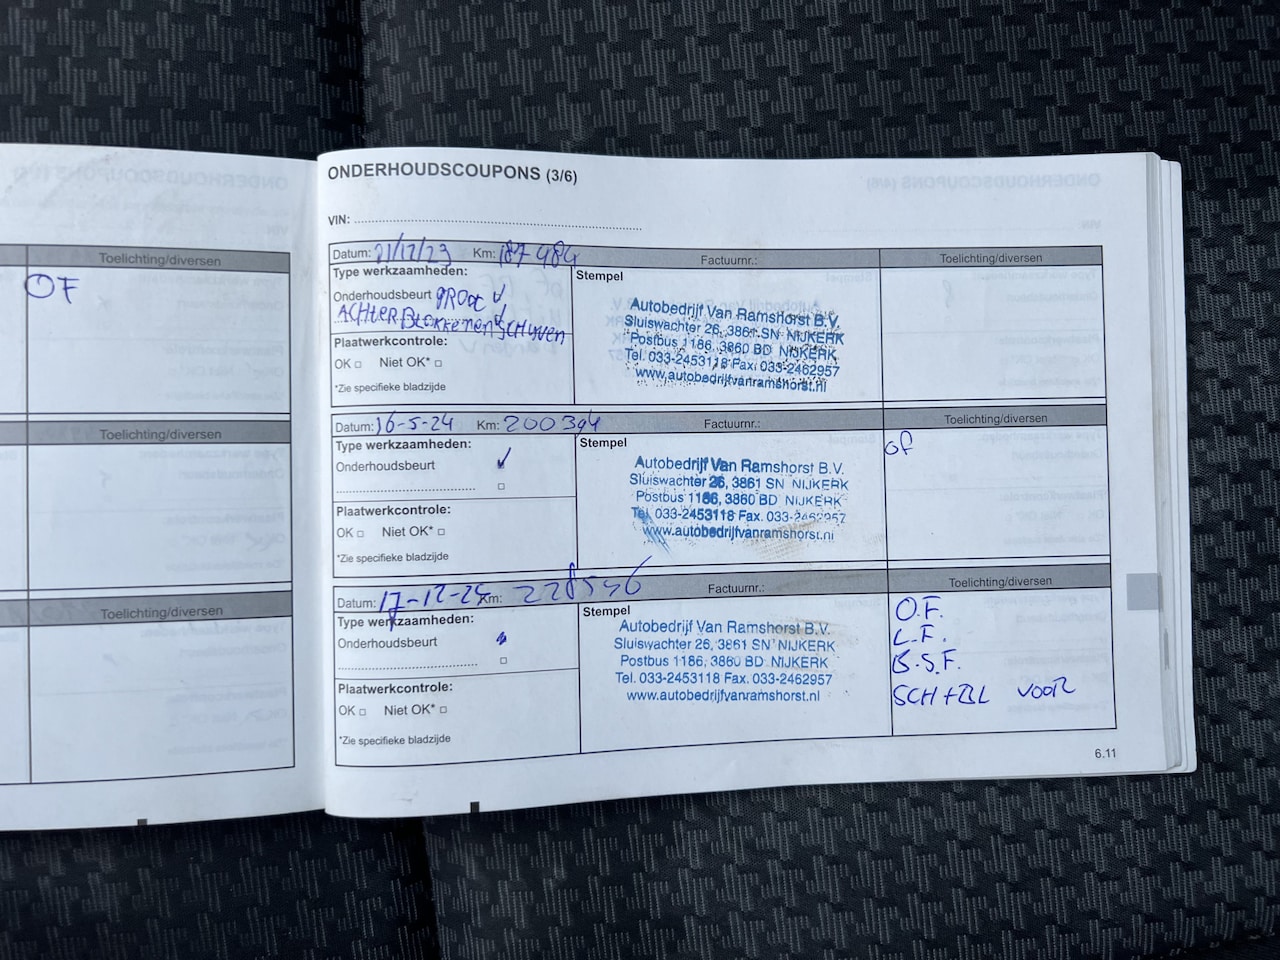 Toelichting/diversen
OF
Toelichting/diversen
Toelichting/diversen
ONDERHOUDSCOUPONS (3/6)
VIN:
Datum: 21/12/23 Km: 187484 Factuurnr.: Toelichting/diversen
Type werkzaamheden: Stempel
Onderhoudsbeurt GROOT
ACHTER BLOKKEN EN SCHIJVEN
Plaatwerkcontrole:
OK □ Niet OK* □
*Zie specifieke bladzijde
Autobedrijf Van Ramshorst B.V.
Sluiswachter 26, 3861 SN NIJKERK
Postbus 1186, 3860 BD NIJKERK
Tel. 033-2453118 Fax. 033-2462957
www.autobedrijfvanramshorst.nl
Datum: 16-5-24 Km: 200394 Factuurnr.: Toelichting/diversen
Type werkzaamheden: Stempel
Onderhoudsbeurt
Plaatwerkcontrole:
OK □ Niet OK* □
*Zie specifieke bladzijde
Autobedrijf Van Ramshorst B.V.
Sluiswachter 26, 3861 SN NIJKERK
Postbus 1186, 3860 BD NIJKERK
Tel. 033-2453118 Fax. 033-2462957
www.autobedrijfvanramshorst.nl
OF
Datum: 17-12-24 Km: 228546 Factuurnr.: Toelichting/diversen
Type werkzaamheden: Stempel
Onderhoudsbeurt
Plaatwerkcontrole:
OK □ Niet OK* □
*Zie specifieke bladzijde
Autobedrijf Van Ramshorst B.V.
Sluiswachter 26, 3861 SN NIJKERK
Postbus 1186, 3860 BD NIJKERK
Tel. 033-2453118 Fax. 033-2462957
www.autobedrijfvanramshorst.nl
O.F.
L.F.
B.S.F.
SCH+BL VOOR
6.11